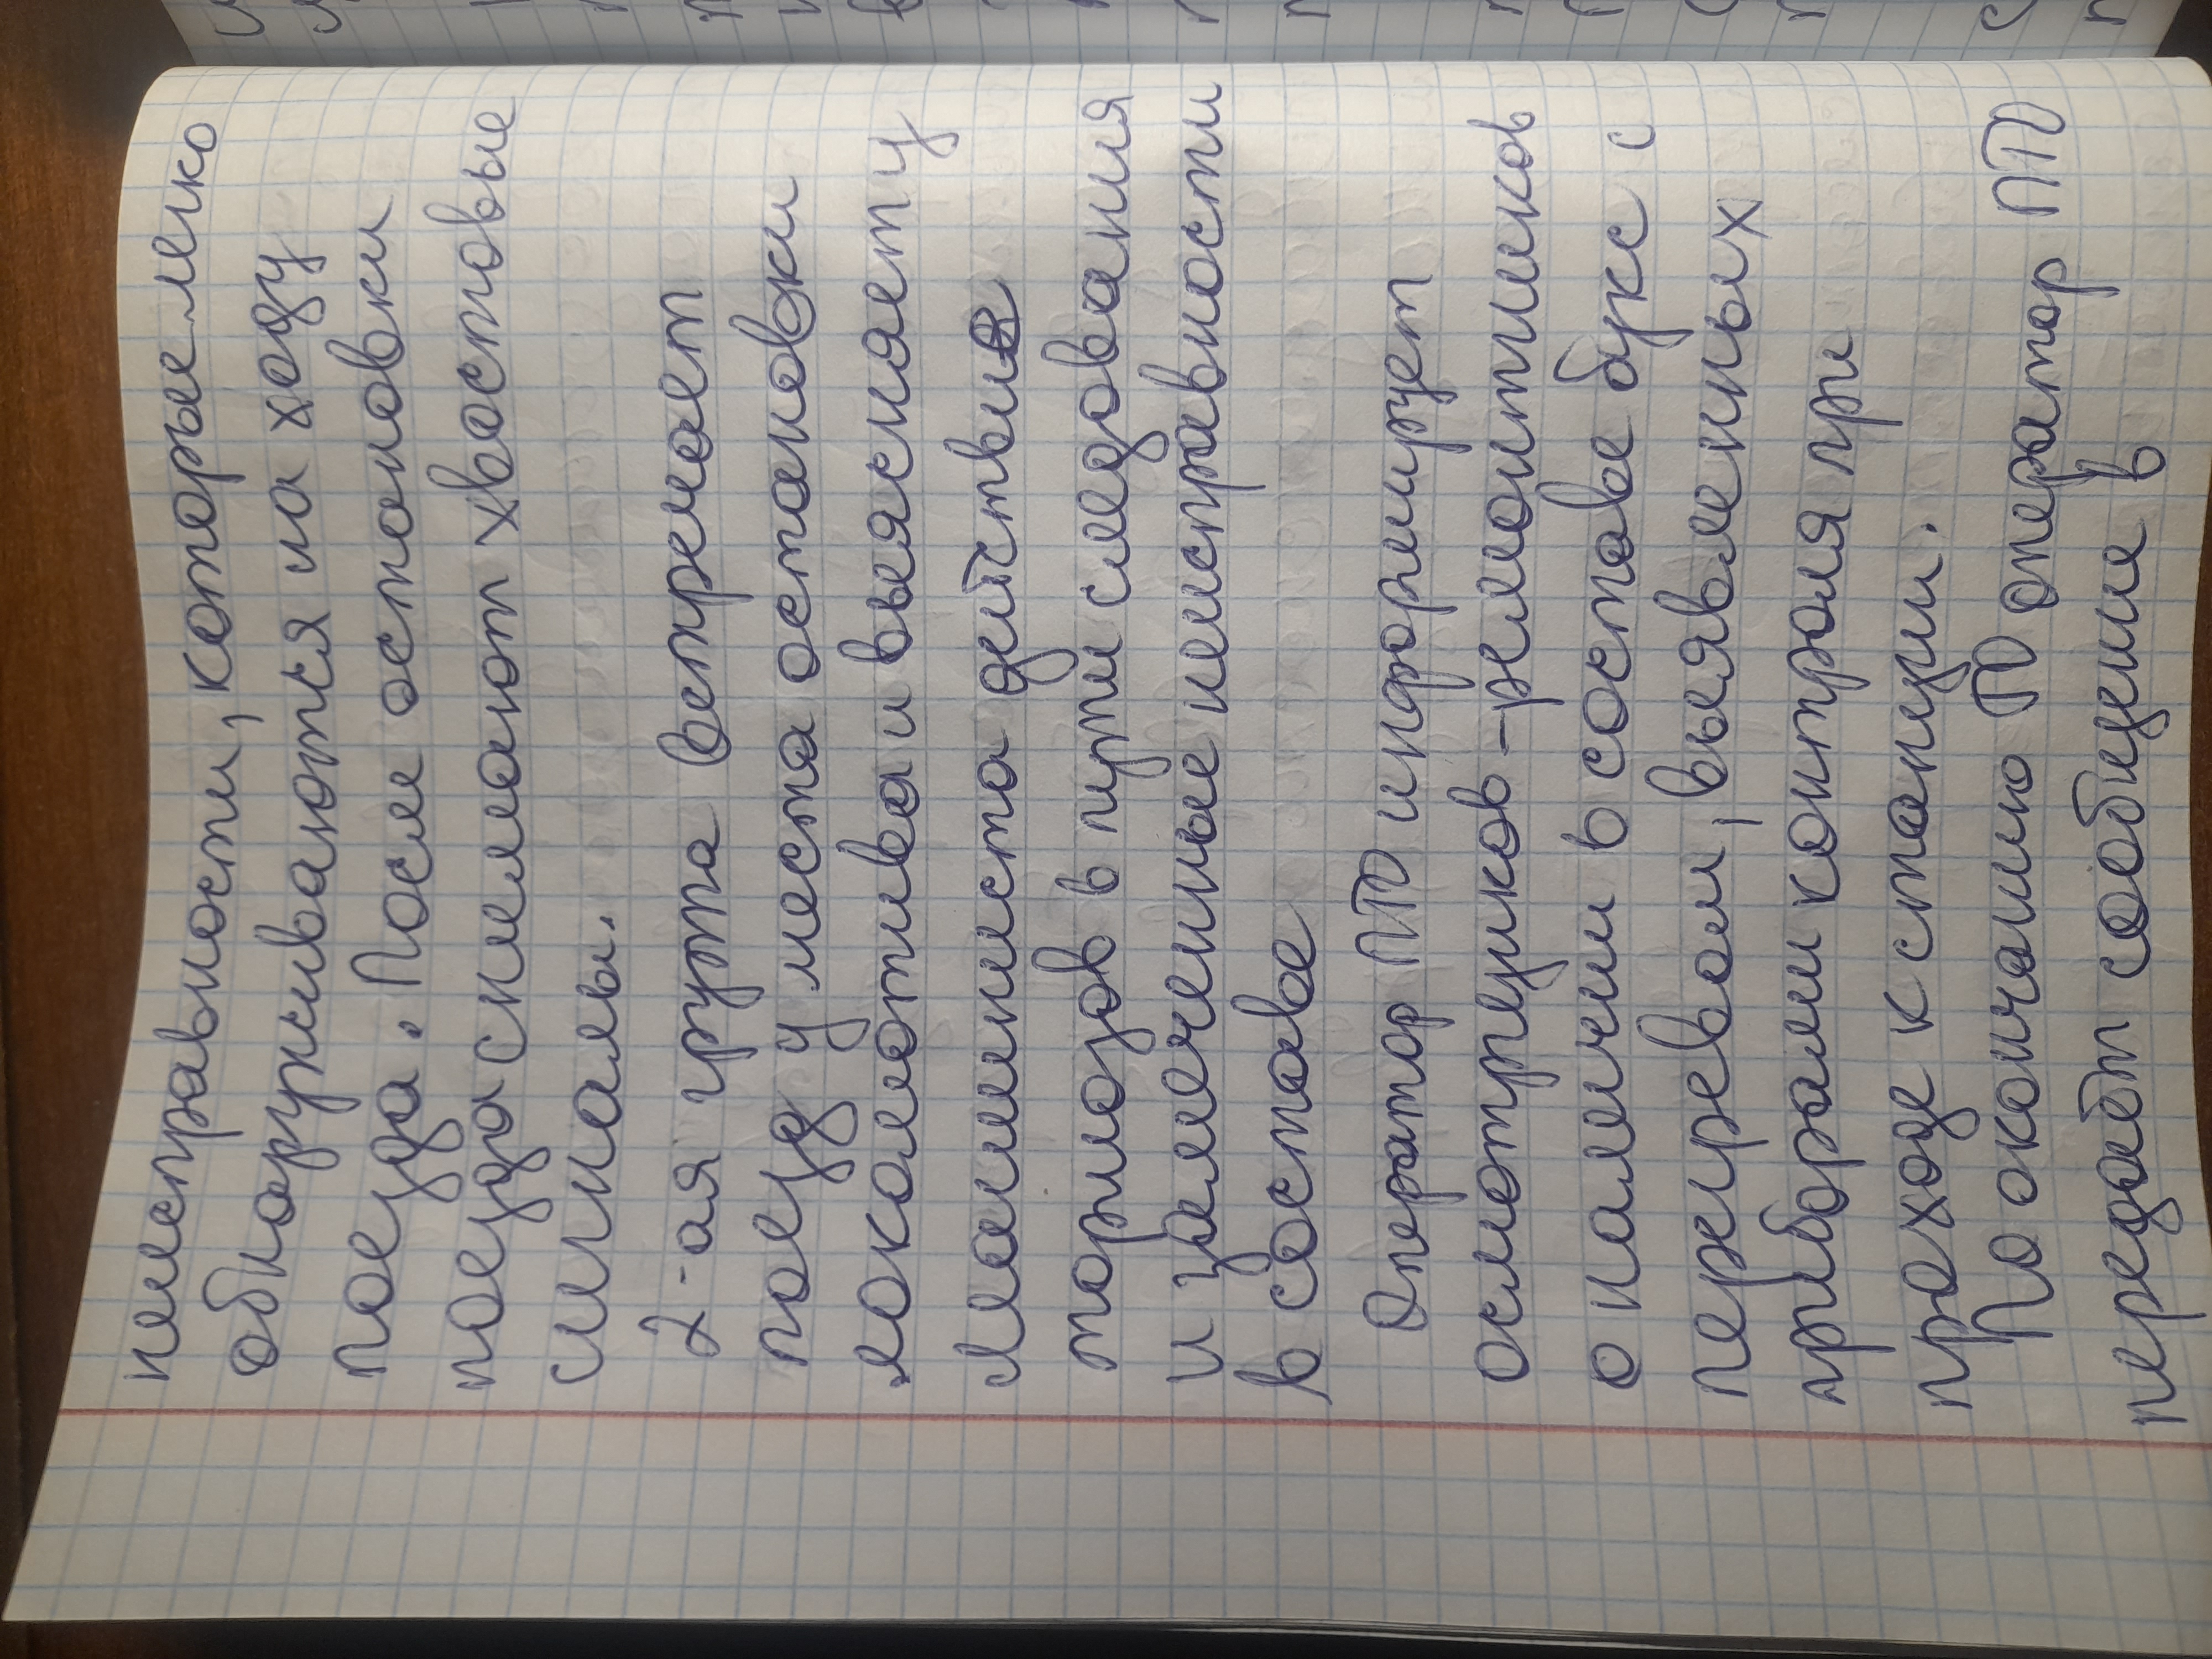 неисправности, которые легко
обнаруживаются на ходу
поезда. После остановки
поезда снимают хвостовые
сигналы.
2-ая группа встречает
поезд у места остановки
локомотива и выясняет у
машиниста действие
тормозов в пути следования
и замеченные неисправности
в составе
Оператор ПТО информирует
осмотрщиков-ремонтников
о наличии в составе букс с
перегревом, выявленных
приборами контроля при
проходе к станции.
По окончанию ТО оператор ПТО
передаёт сообщение в